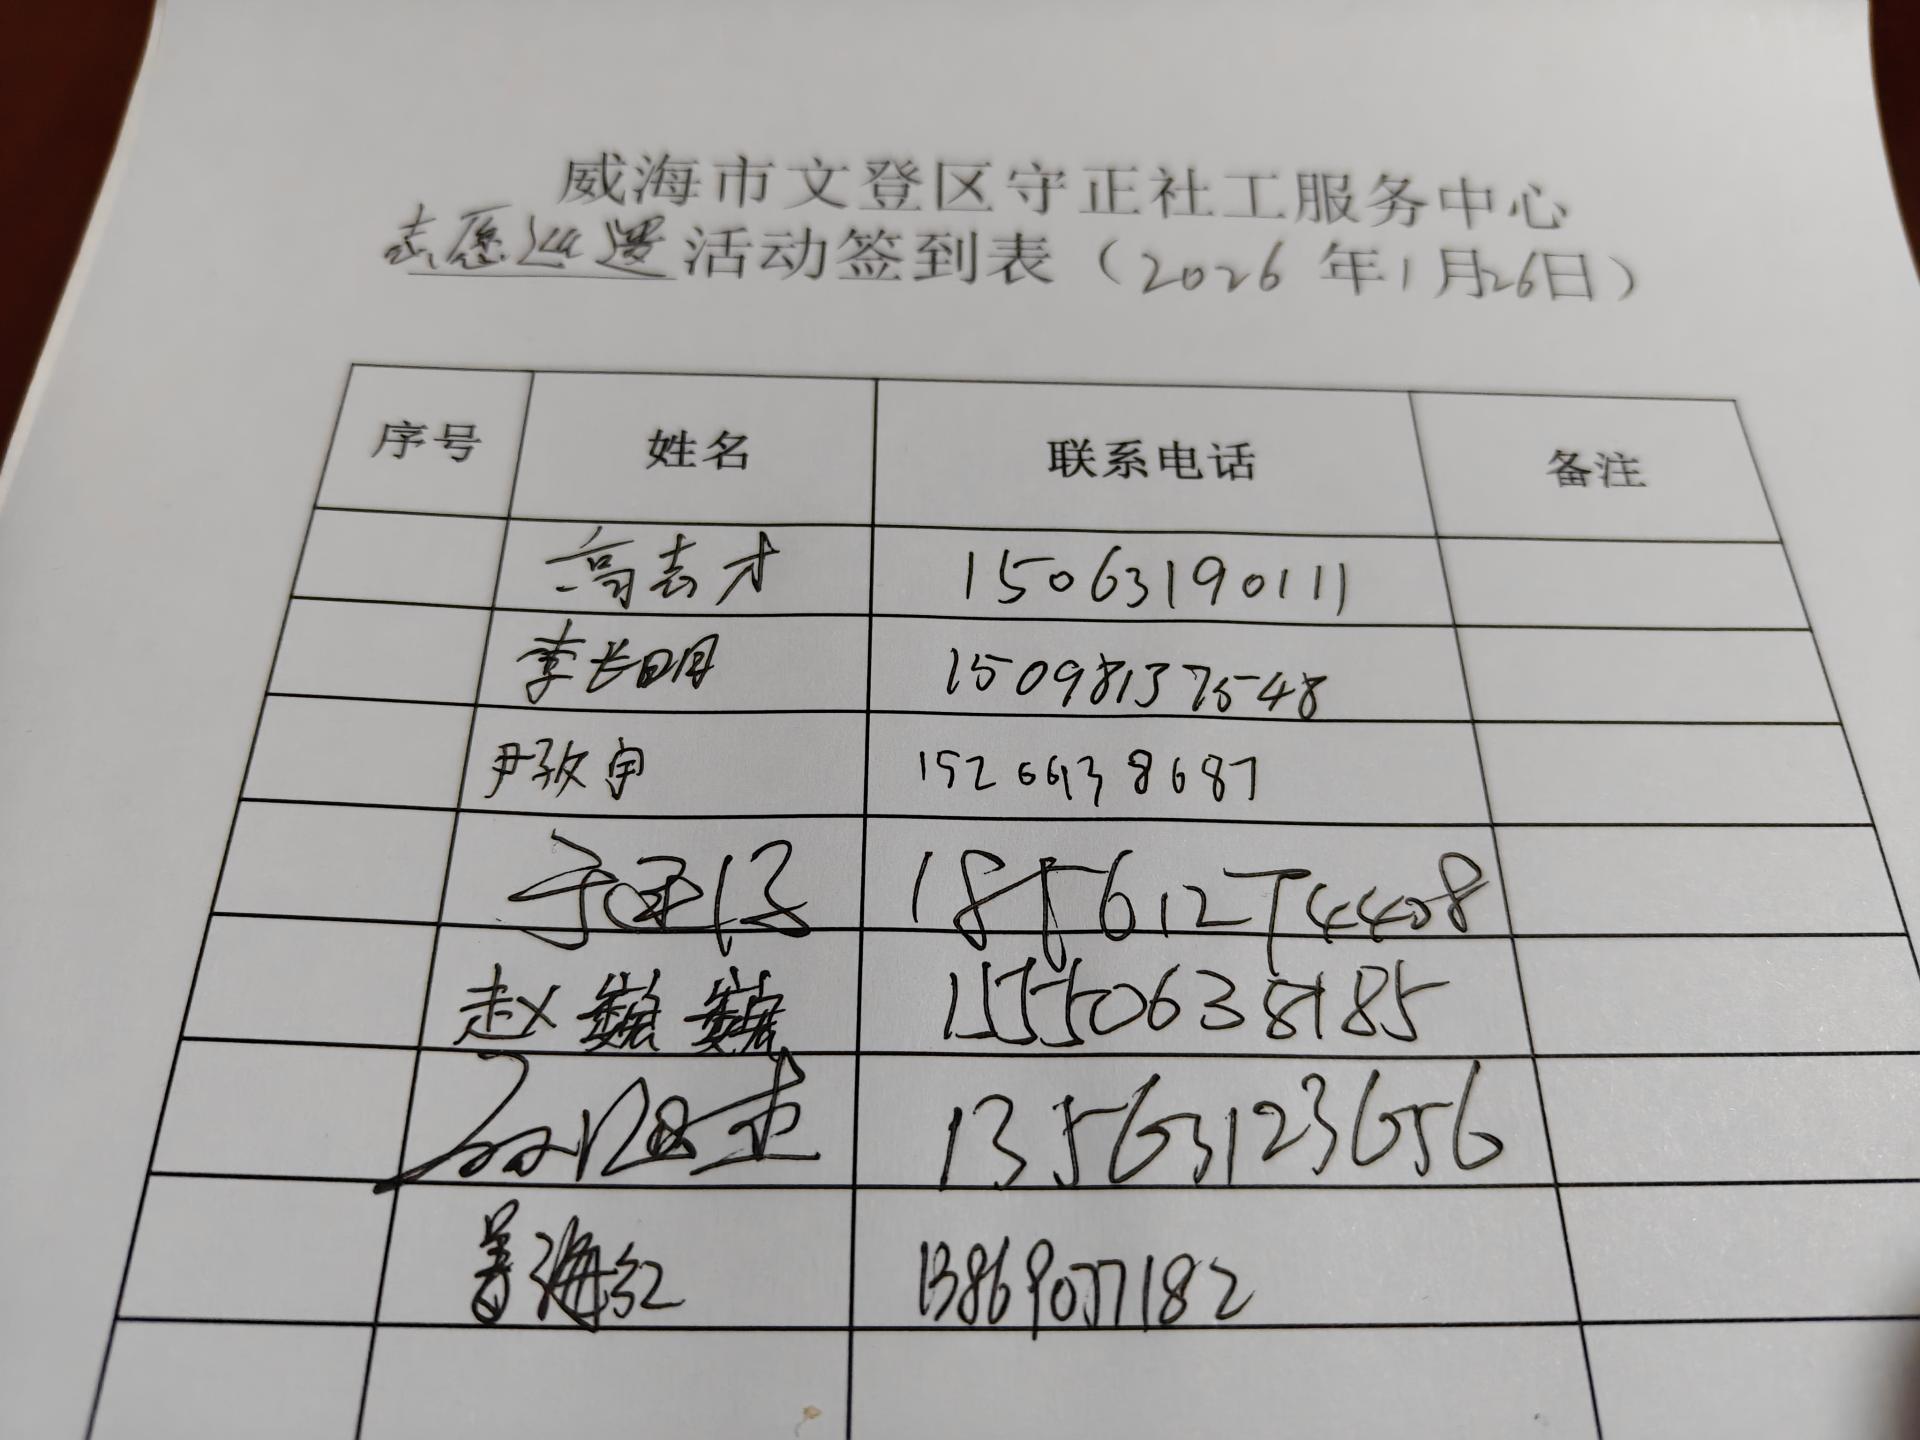 威海市文登区守正社工服务中心
志愿巡逻活动签到表（2026年1月26日）
序号 姓名 联系电话 备注
高志才 15063190111
李长明 15098137548
尹孜宇
18561274408
赵巍巍 15550638185
13563123656
海红 13869077182